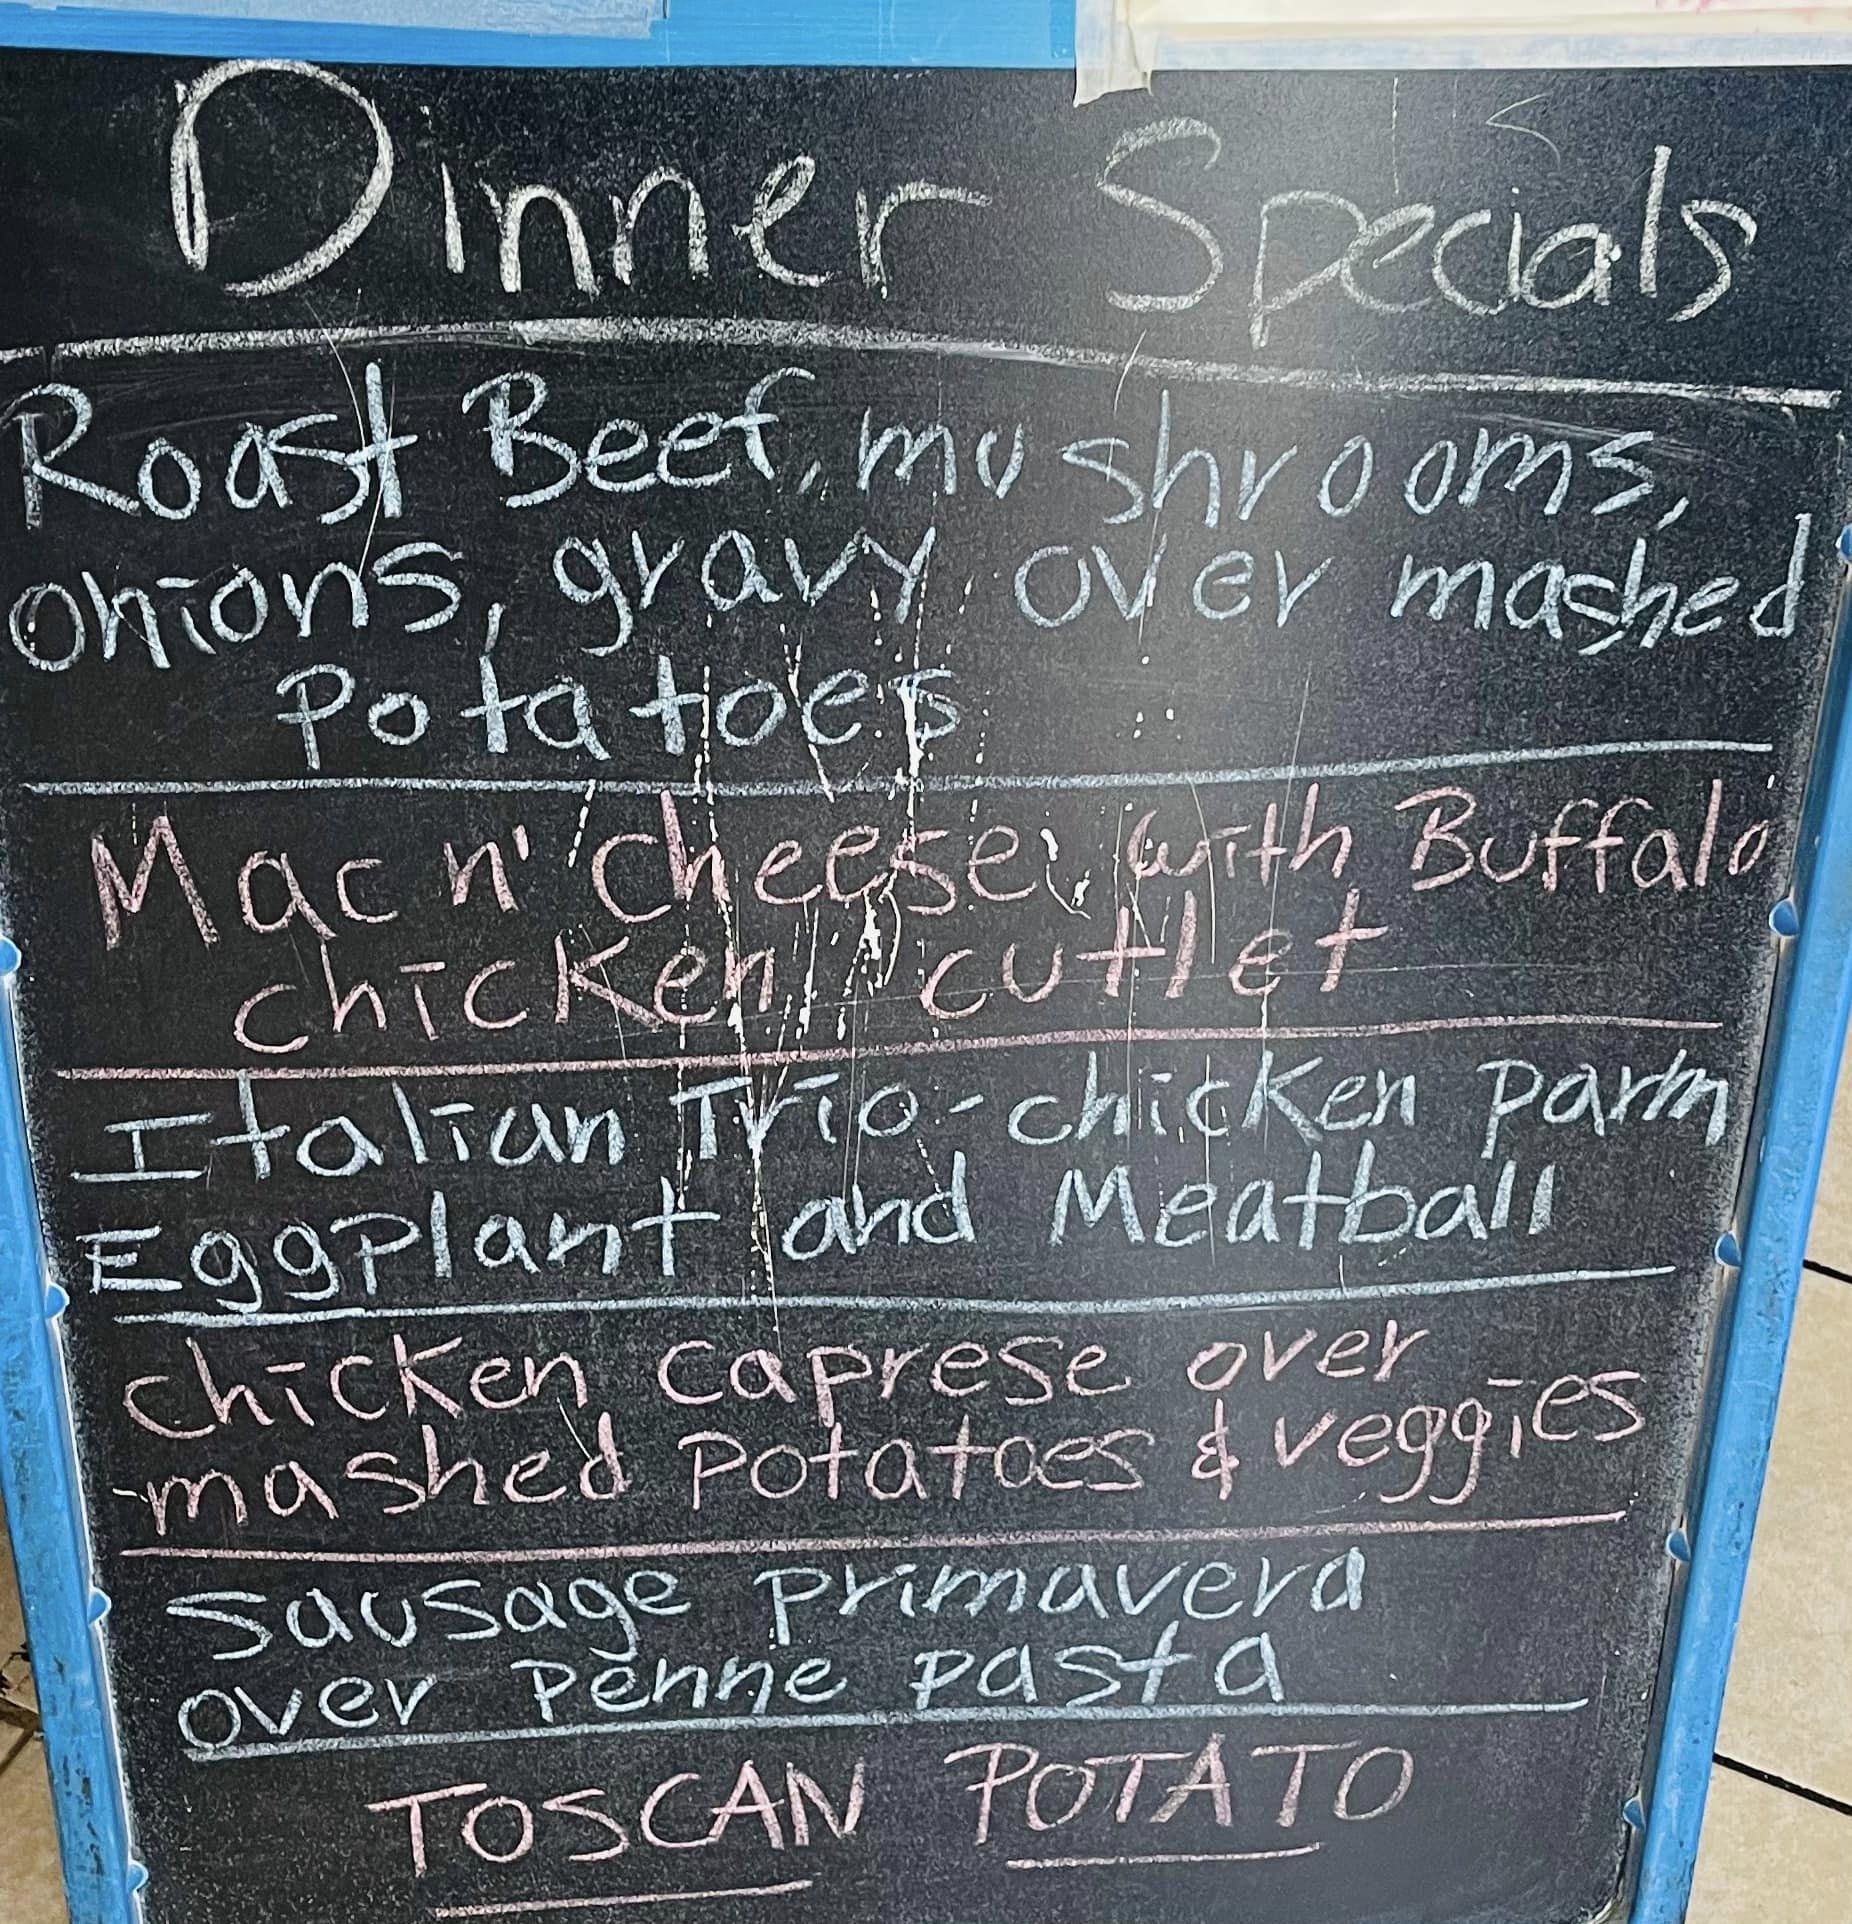 Dinner Specials
Roast Beef, mushrooms,
onions, gravy over mashed
Potatoes
Mac n' cheese with Buffalo
chicken cutlet
Italian Trio - chicken parm
Eggplant and Meatball
chicken caprese over
mashed potatoes & veggies
sausage primavera
over penne pasta
TOSCAN POTATO